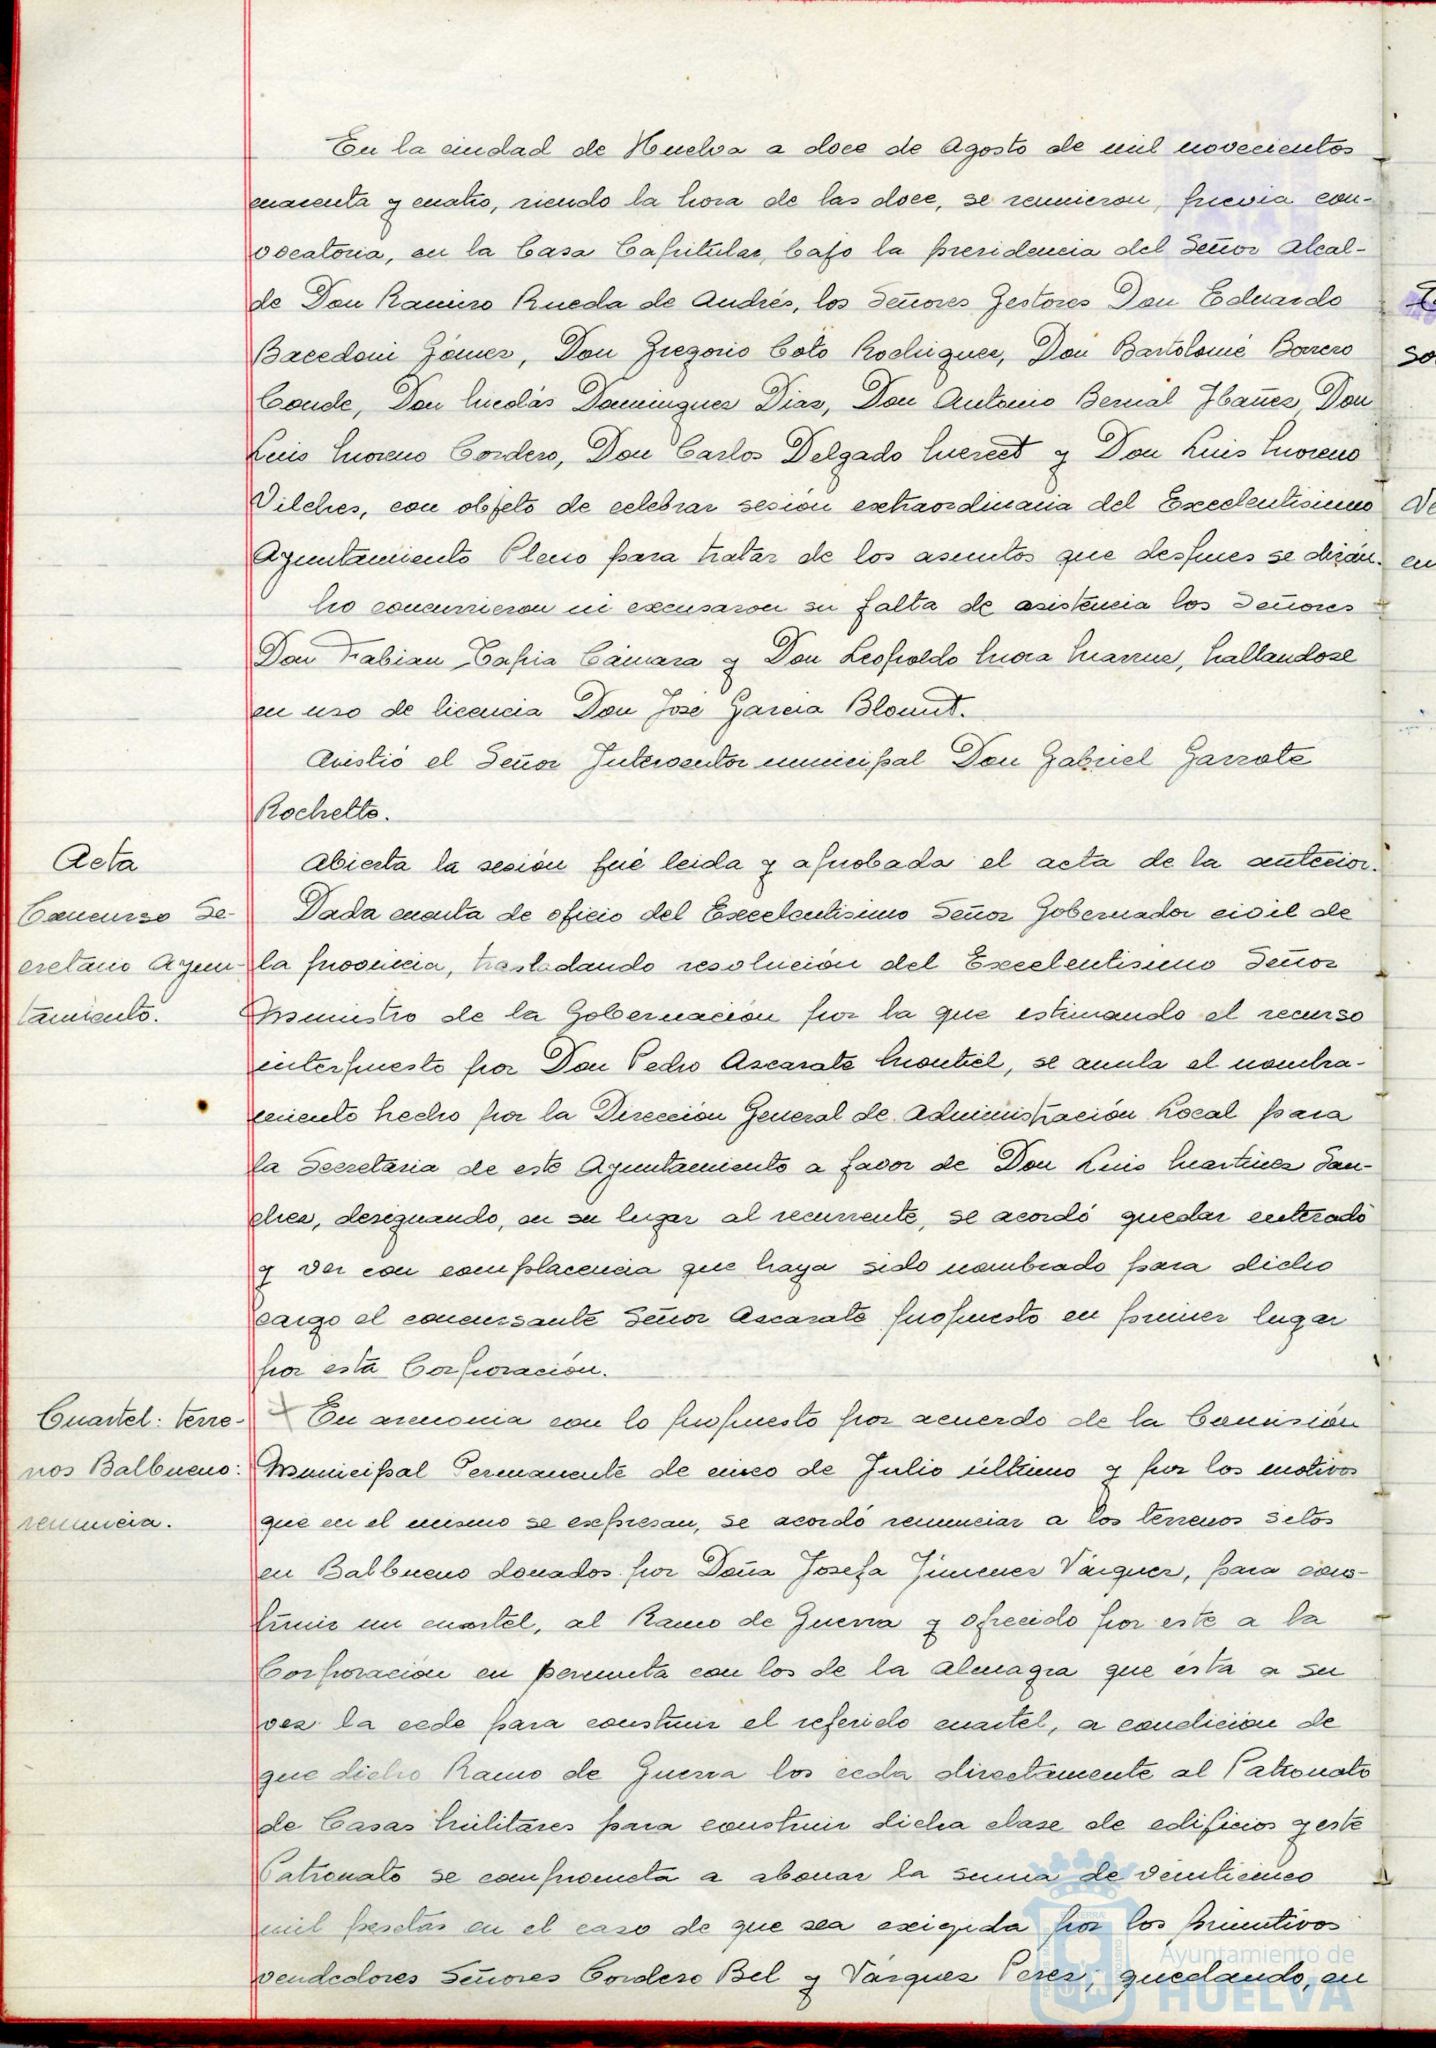 En la ciudad de Huelva a doce de Agosto de mil novecientos
cuarenta y cuatro, siendo la hora de las doce, se reunieron, previa con-
vocatoria, en la Casa Capitular, bajo la presidencia del Señor Alcal-
de Don Ramiro Rueda de Andrés, los Señores Gestores Don Eduardo
Bacedoni Gómez, Don Gregorio Coto Rodriguez, Don Bartolomé Borrero
Conde, Don Nicolás Dominguez Diaz, Don Antonio Bernal Ibañez, Don
Luis Moreno Cordero, Don Carlos Delgado Mercet y Don Luis Moreno
Vilches, con objeto de celebrar sesión extraordinaria del Excelentisimo
Ayuntamiento Pleno para tratar de los asuntos que despues se dirán.
No concurrieron ni excusaron su falta de asistencia los Señores
Don Fabian Tapia Cámara y Don Leopoldo Mora, hallandose
en uso de licencia Don José Garcia Blount.
Asistió el Señor Interventor municipal Don Gabriel Garrote
Rochette.
Acta
Abierta la sesión fué leida y aprobada el acta de la anterior.
Concurso Se-
cretario Ayun-
tamiento.
Dada cuenta de oficio del Excelentisimo Señor Gobernador civil de
la provincia, trasladando resolución del Excelentisimo Señor
Ministro de la Gobernación por la que estimando el recurso
interpuesto por Don Pedro Ascarate Montiel, se anula el nombra-
miento hecho por la Dirección General de Administración Local para
la Secretaria de este Ayuntamiento a favor de Don Luis Martinez San-
chez, designando, en su lugar al recurrente, se acordó quedar enterado
y ver con complacencia que haya sido nombrado para dicho
cargo el concursante Señor Ascarate propuesto en primer lugar
por esta Corporación.
Cuartel: terre-
nos Balbueno:
renuncia.
En armonia con lo propuesto por acuerdo de la Comisión
Municipal Permanente de cinco de Julio último y por los motivos
que en el mismo se expresan, se acordó renunciar a los terrenos sitos
en Balbueno donados por Doña Josefa Jimenez Vázquez, para cons-
truir un cuartel, al Ramo de Guerra y ofrecido por este a la
Corporación en permuta con los de la Almagra que ésta a su
vez la cede para construir el referido cuartel, a condición de
que dicho Ramo de Guerra los ceda directamente al Patronato
de Casas Militares para construir dicha clase de edificios y este
Patronato se comprometa a abonar la suma de veinticinco
mil pesetas en el caso de que sea exigida por los primitivos
vendedores Señores Cordero Bel y Vázquez Perez; quedando, en
Ayuntamiento de
HUELVA